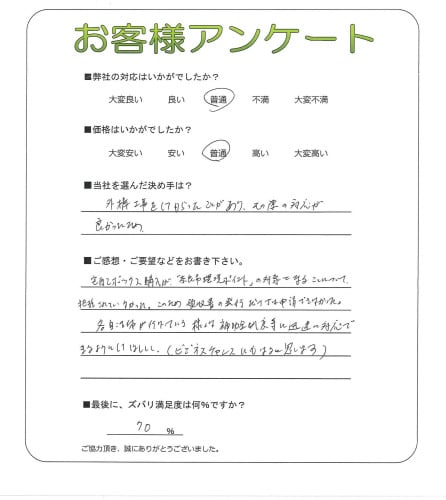 お客様アンケート
■弊社の対応はいかがでしたか?
大変良い 良い 普通 不満 大変不満
■価格はいかがでしたか?
大変安い 安い 普通 高い 大変高い
■当社を選んだ決め手は?
外構工事をして頂いた事があり、その際の対応が
良かったため
■ご感想・ご要望などをお書き下さい。
宅配ボックス購入が、「奈良市環境ポイント」の対象であることについて、
把握されていなかった。このため領収書の発行
各自治体が行っている様々な補助金制度等に迅速に対応で
きるようにしてほしい。(ビジネスチャンスにもなると思います)
■最後に、ズバリ満足度は何%ですか?
70 %
ご協力頂き、誠にありがとうございました。